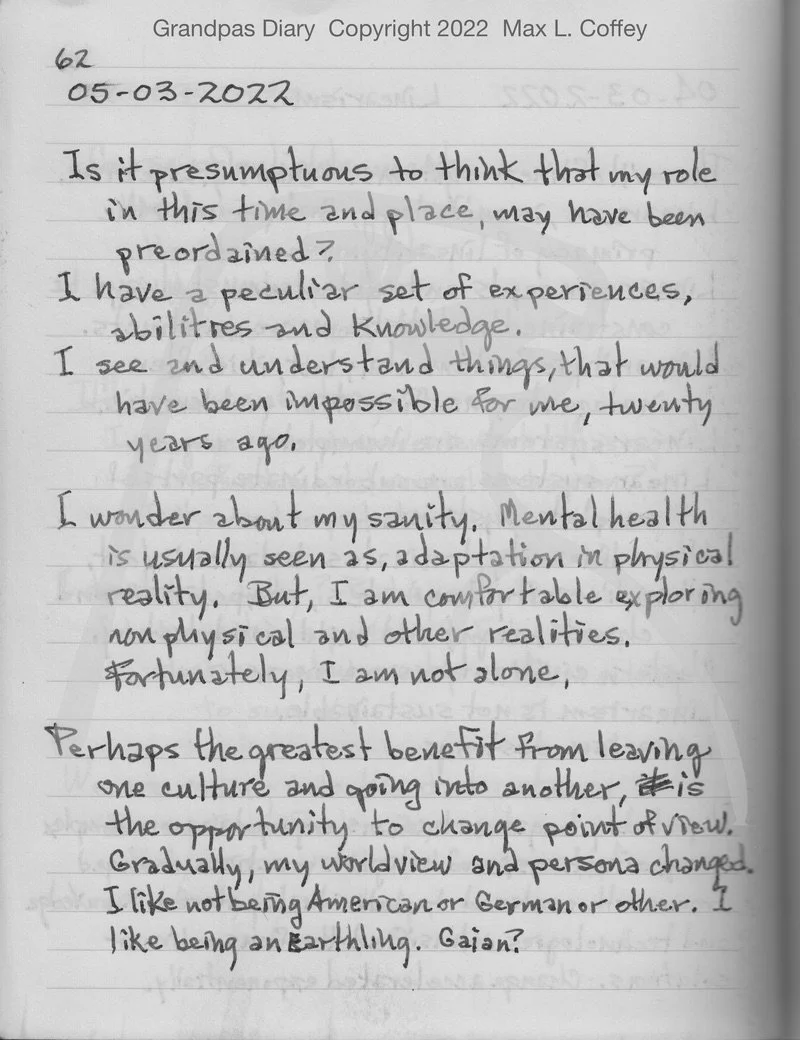 Grandpas Diary Copyright 2022 Max L. Coffey
62
05-03-2022
Is it presumptuous to think that my role
in this time and place, may have been
preordained?
I have a peculiar set of experiences,
abilitres and knowledge.
I see and understand things, that would
have been impossible for me, twenty
years ago.
I wonder about my sanity. Mental health
is usually seen as, adaptation in physical
reality. But, I am comfortable exploring
non physical and other realities.
Fortunately, I am not alone,
Perhaps the greatest benefit from leaving
one culture and going into another, is
the opportunity to change point of view.
Gradually, my worldview and persona changed.
I like not being American or German or other. I
like being an Earthling. Gaian?